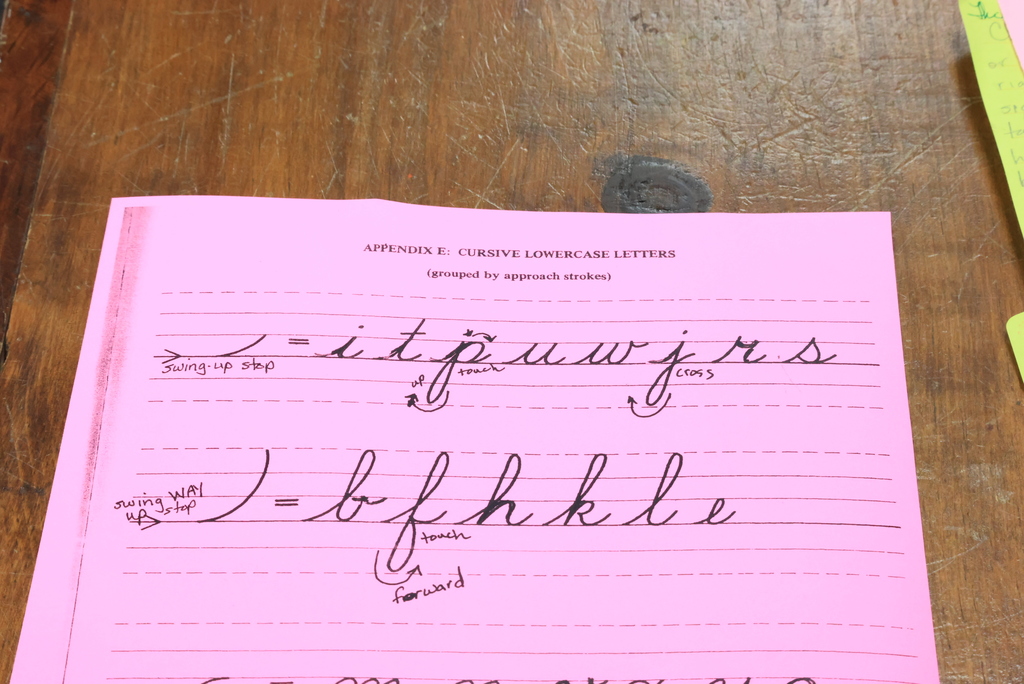 APPENDIX E: CURSIVE LOWERCASE LETTERS
(grouped by approach strokes)
= i t p u w j r s
swing-up stop
up
touch
cross
= b f h k l e
swing WAY
up stop
touch
forward
=
The